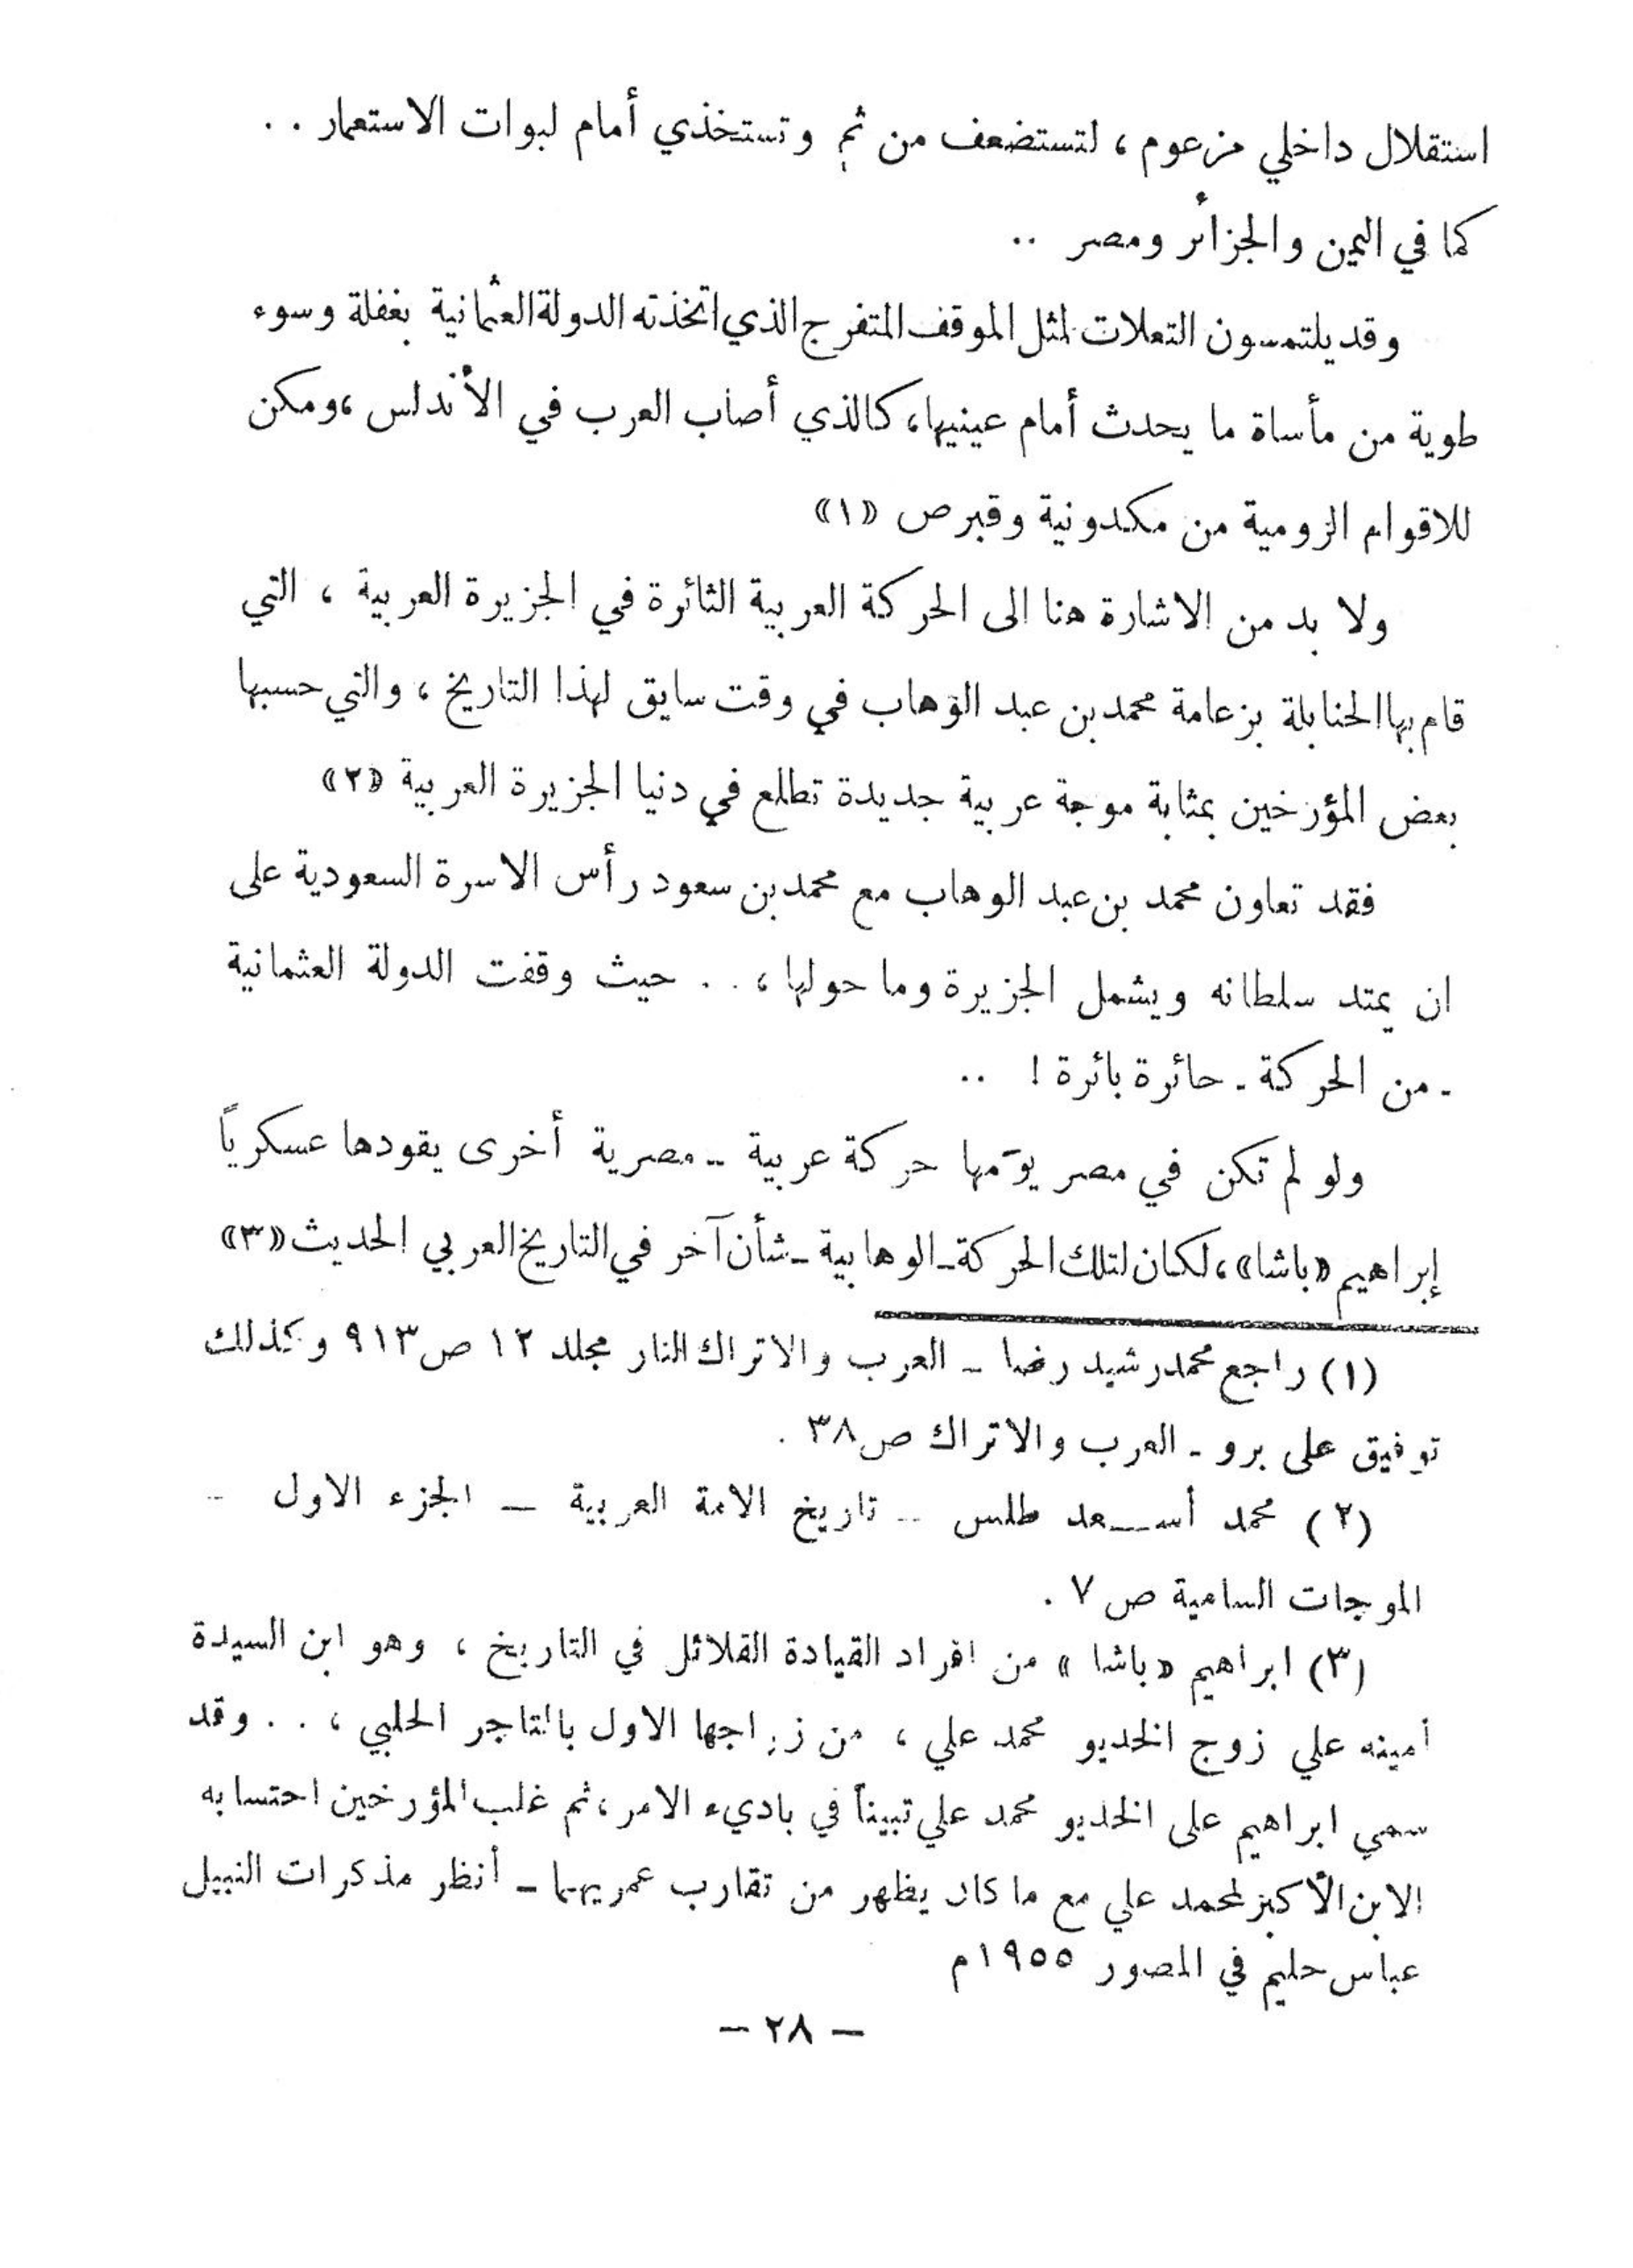 استقلال داخلي مزعوم ، لتستضعف من ثم وتستخذي أمام لبوات الاستعمار . .
كما في اليمن والجزائر ومصر ..
وقد يلتمسون التعلات لمثل الموقف المتفرج الذي اتخذته الدولة العثمانية بغفلة وسوء
طوية من مأساة ما يحدث أمام عينيها، كالذي أصاب العرب في الأندلس ،ومكن
للاقوام الرومية من مكدونية وقبرص «١»
ولا بد من الاشارة هنا الى الحركة العربية الثائرة في الجزيرة العربية ، التي
قام بها الحنابلة بزعامة محمد بن عبد الوهاب في وقت سابق لهذا التاريخ ، والتي حسبها
بعض المؤرخين بمثابة موجة عربية جديدة تطلع في دنيا الجزيرة العربية «٢»
فقد تعاون محمد بن عبد الوهاب مع محمد بن سعود رأس الاسرة السعودية على
ان يمتد سلطانه ويشمل الجزيرة وما حولها ، . . حيث وقفت الدولة العثمانية
- من الحركة - حائرة بائرة ! ..
ولو لم تكن في مصر يومها حركة عربية - مصرية أخرى يقودها عسكرياً
إبراهيم «باشا» ، لكان لتلك الحركة - الوهابية - شأن آخر في التاريخ العربي الحديث «٣»
(١) راجع محمد رشيد رضا - العرب والاتراك المنار مجلد ١٢ ص ٩١٣ وكذلك
توفيق على برو - العرب والاتراك ص ٣٨ .
(٢) محمد أســعد طلس - تاريخ الامة العربية - الجزء الاول -
الموجات السامية ص ٧ .
(٣) ابراهيم «باشا» من افراد القيادة القلائل في التاريخ ، وهو ابن السيدة
أمينه علي زوج الخديو محمد علي ، من زواجها الاول بالتاجر الحلبي ، . . وقد
سمي ابراهيم على الخديو محمد علي تبيناً في باديء الامر ، ثم غلب المؤرخين احتسابه
الابن الأكبر لمحمد علي مع ما كان يظهر من تقارب عمريهما - أنظر مذكرات النبيل
عباس حليم في المصور ١٩٥٥م
- ٢٨ -